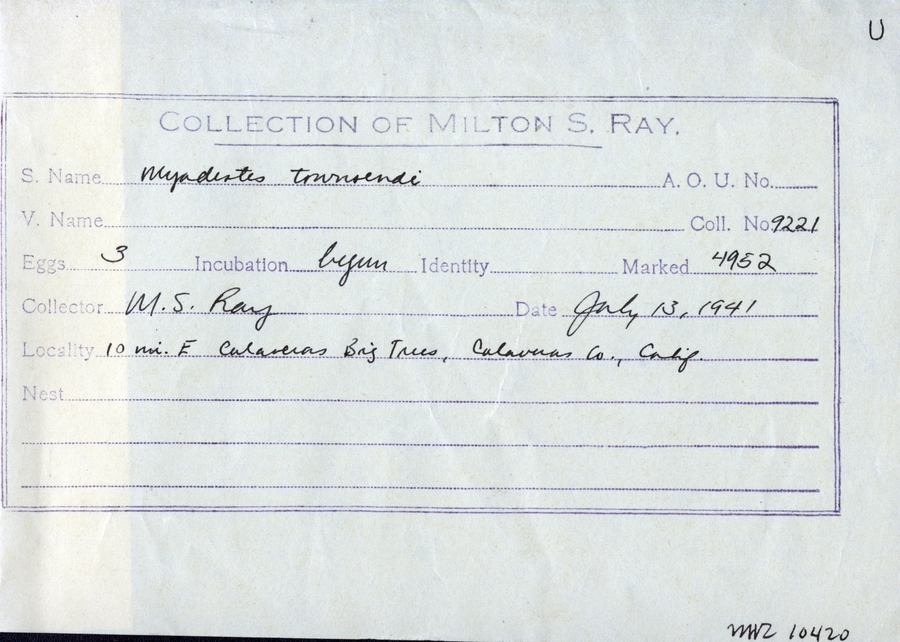 U
COLLECTION OF MILTON S. RAY.
S. Name Myadestes townsendi A. O. U. No.
V. Name Coll. No 9221
Eggs 3 Incubation begun Identity Marked 4952
Collector M. S. Ray Date July 13, 1941
Locality 10 mi. E Calaveras Big Trees, Calaveras Co., Calif.
Nest
MVZ 10420